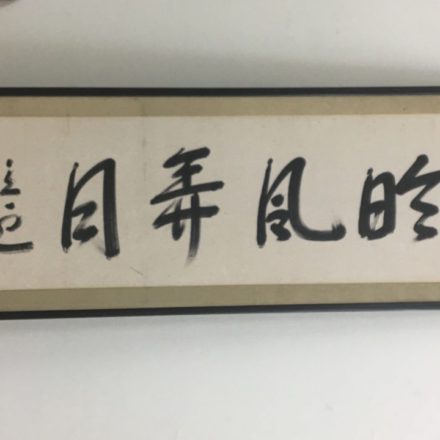 吟風弄月